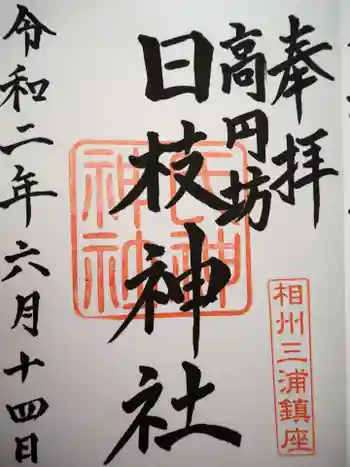 奉拝
高円坊
日枝神社
令和二年六月十四日
相州三浦鎮座